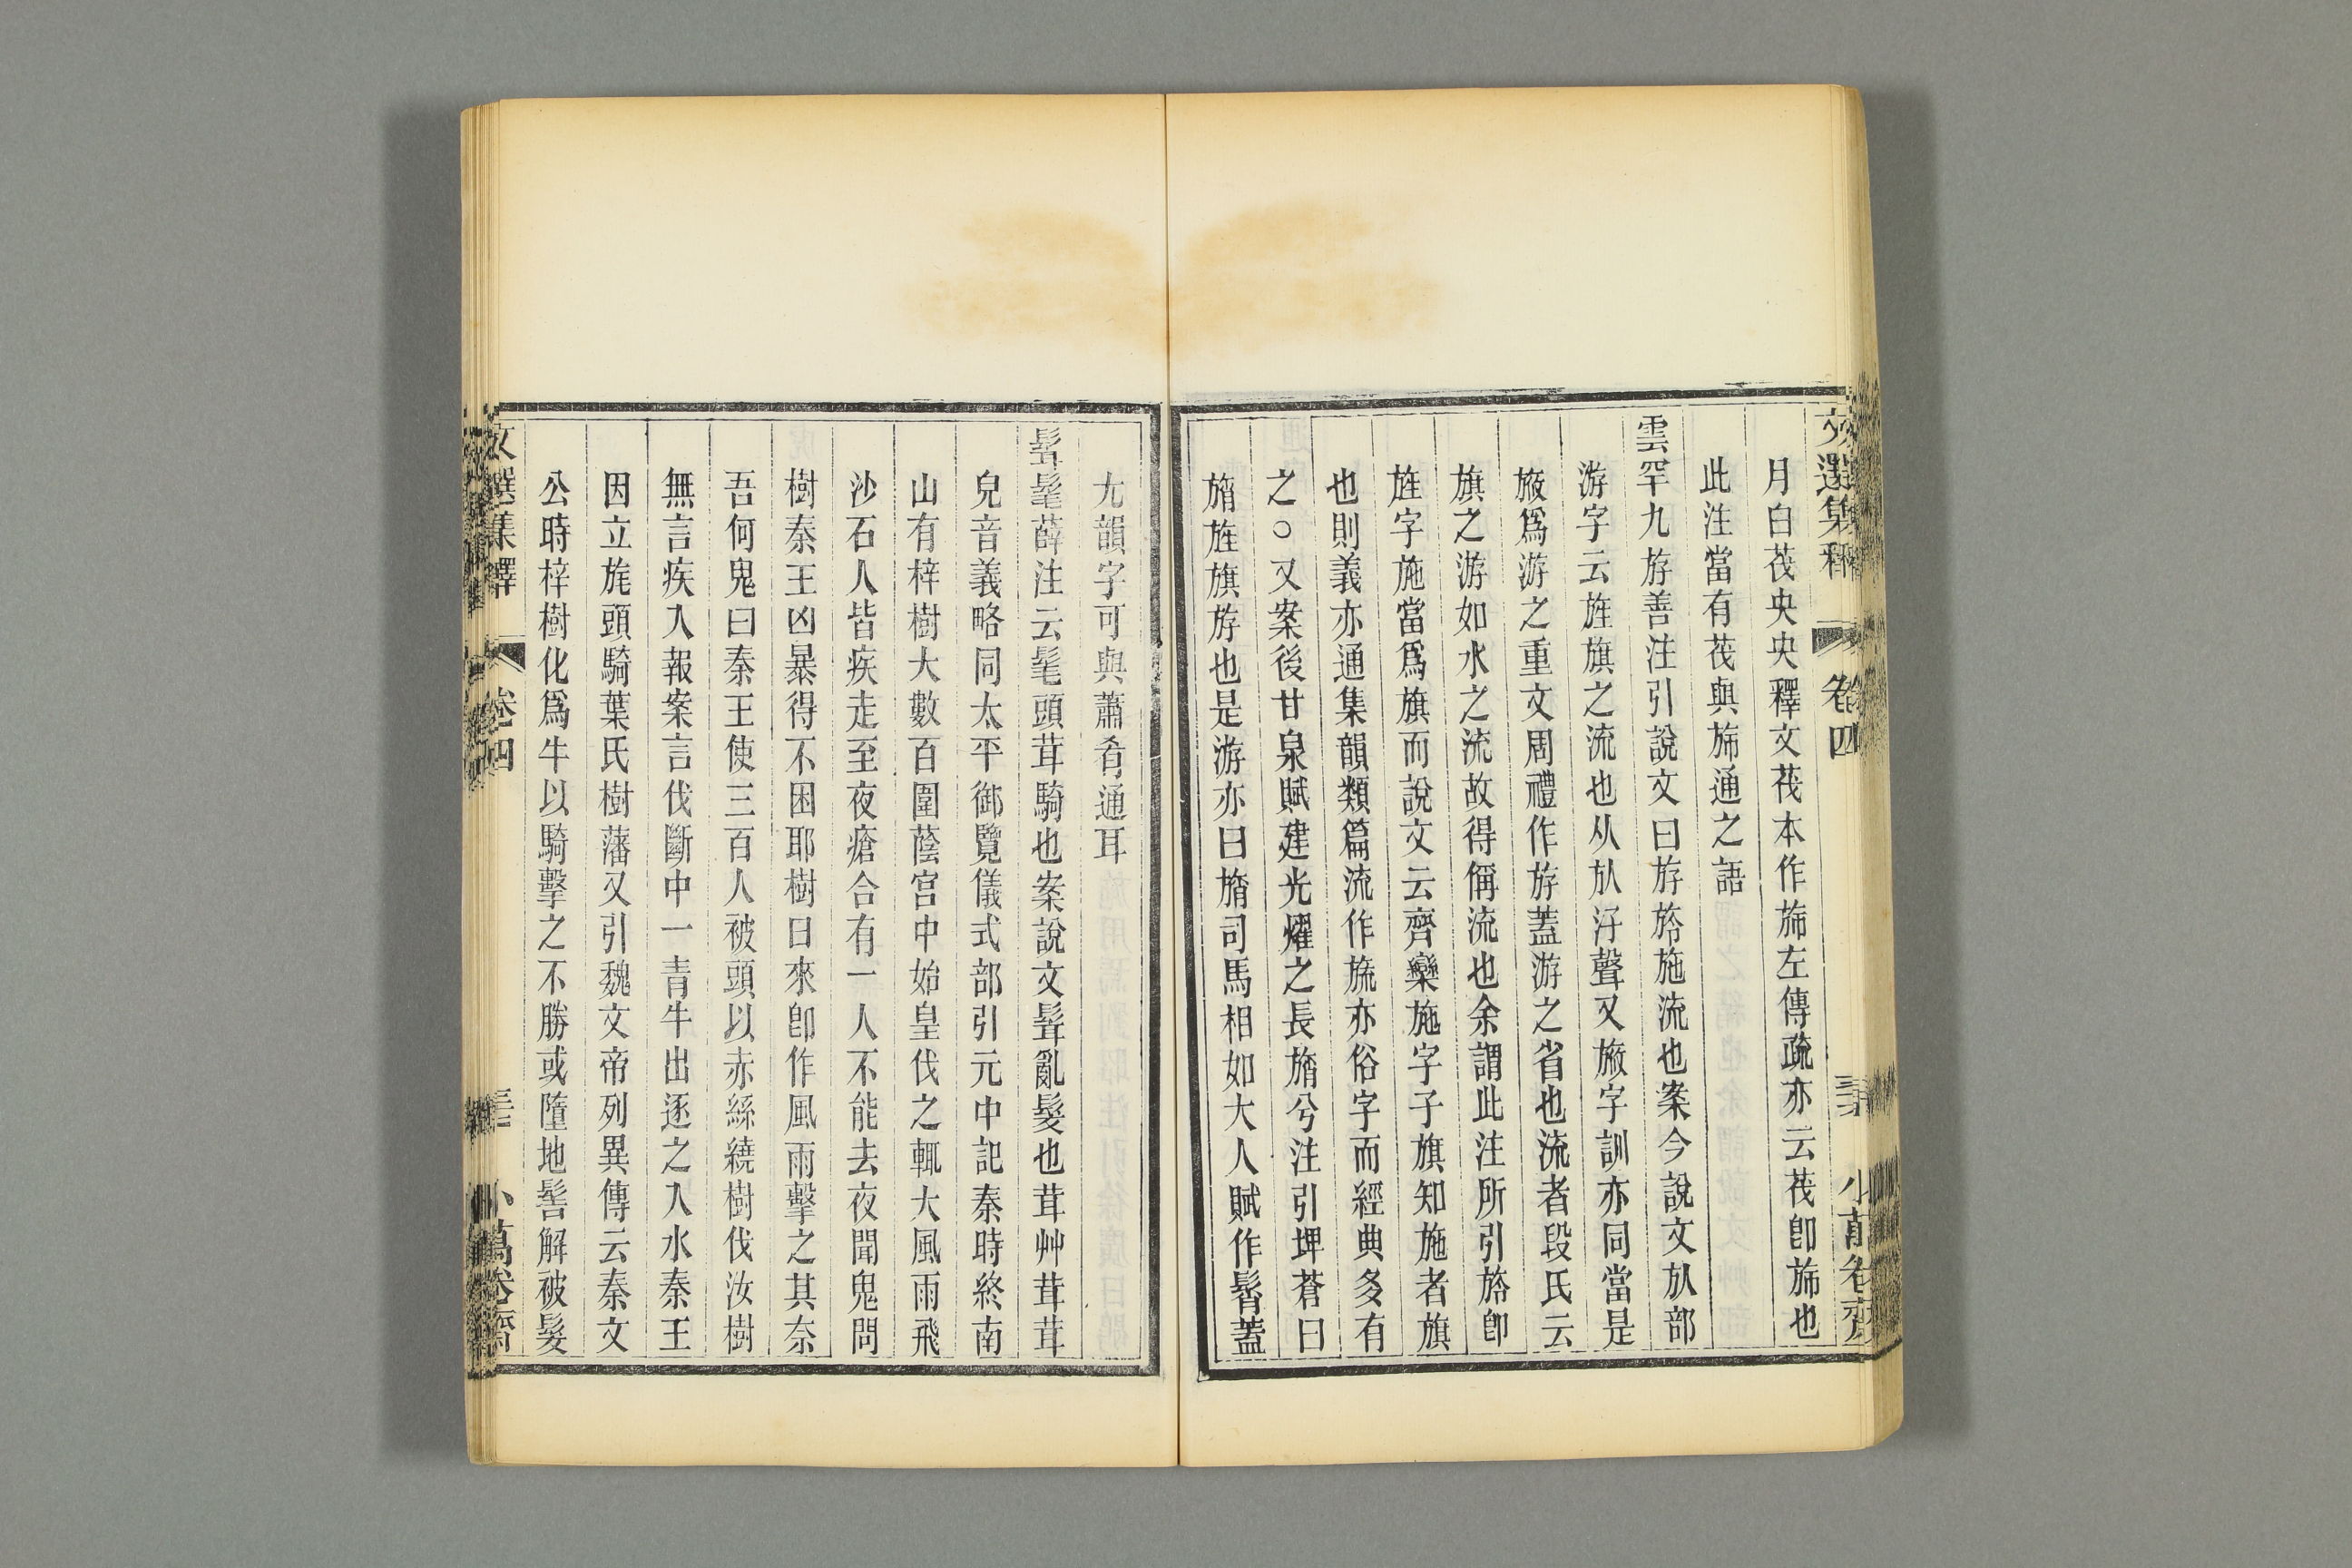 文選集釋　卷四　三十　小萬卷齋
月白茷央央釋文茷本作旆左傳疏亦云茷卽旆也
此注當有茷與旆通之語
雲罕九斿善注引說文曰斿旍施流也案今說文㫃部
游字云旌旗之流也从㫃汓聲又㫍字訓亦同當是
㫍爲游之重文周禮作斿蓋游之省也流者段氏云
旗之游如水之流故得偁流也余謂此注所引旍卽
旌字施當爲旗而說文云齊欒施字子旗知施者旗
也則義亦通集韻類篇流作旒亦俗字而經典多有
之○又案後甘泉賦建光燿之長旓兮注引埤蒼曰
旓旌旗斿也是游亦曰旓司馬相如大人賦作髾蓋
尤韻字可與蕭肴通耳
髶髦薛注云髦頭茸騎也案說文髶亂髮也茸艸茸茸
皃音義略同太平御覽儀式部引元中記秦時終南
山有梓樹大數百圍蔭宮中始皇伐之輒大風雨飛
沙石人皆疾走至夜瘡合有一人不能去夜聞鬼問
樹秦王凶暴得不困耶樹曰來卽作風雨擊之其奈
吾何鬼曰秦王使三百人被頭以赤絲繞樹伐汝樹
無言疾入報案言伐斷中一青牛出逐之入水秦王
因立旄頭騎葉氏樹藩又引魏文帝列異傳云秦文
公時梓樹化爲牛以騎擊之不勝或墮地髻解被髮
文選集釋　卷四　小萬卷齋